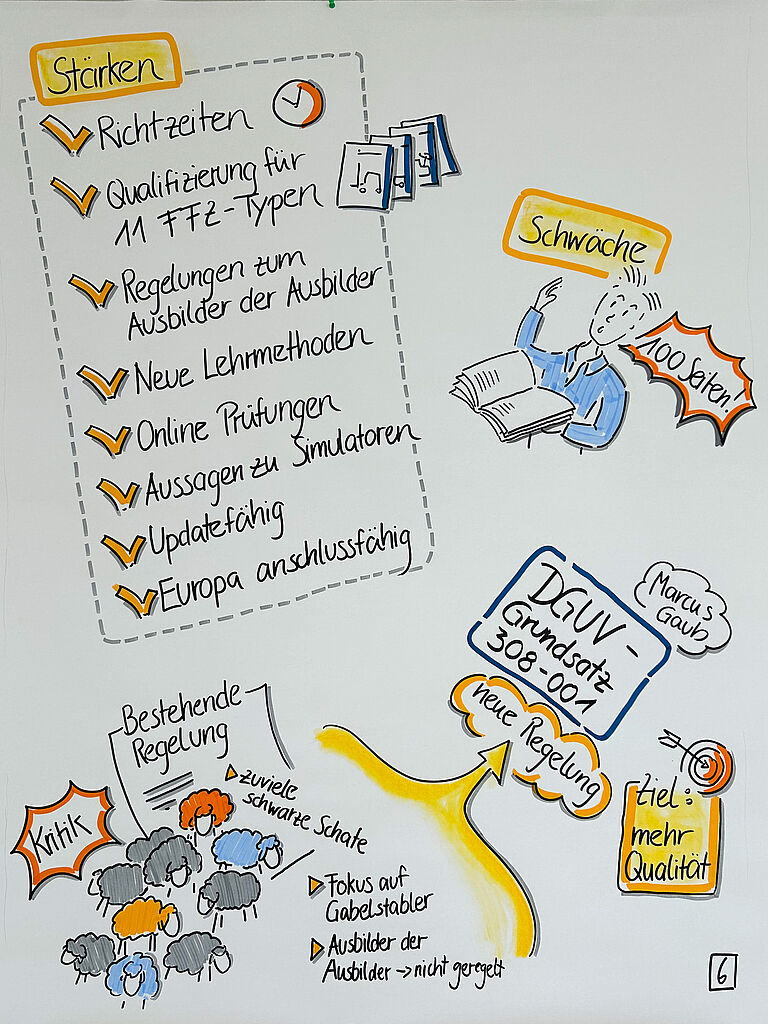 Stärken
Richtzeiten
Qualifizierung für
11 FFZ-Typen
Regelungen zum
Ausbilder der Ausbilder
Neue Lehrmethoden
Online Prüfungen
Aussagen zu Simulatoren
Updatefähig
Europa anschlussfähig
Schwäche
100 Seiten!
DGUV-
Grundsatz
308-001
Marcus
Gaub
neue Regelung
Ziel:
mehr
Qualität
Bestehende
Regelung
Kritik
zuviele
schwarze Schafe
Fokus auf
Gabelstabler
Ausbilder der
Ausbilder → nicht geregelt
6